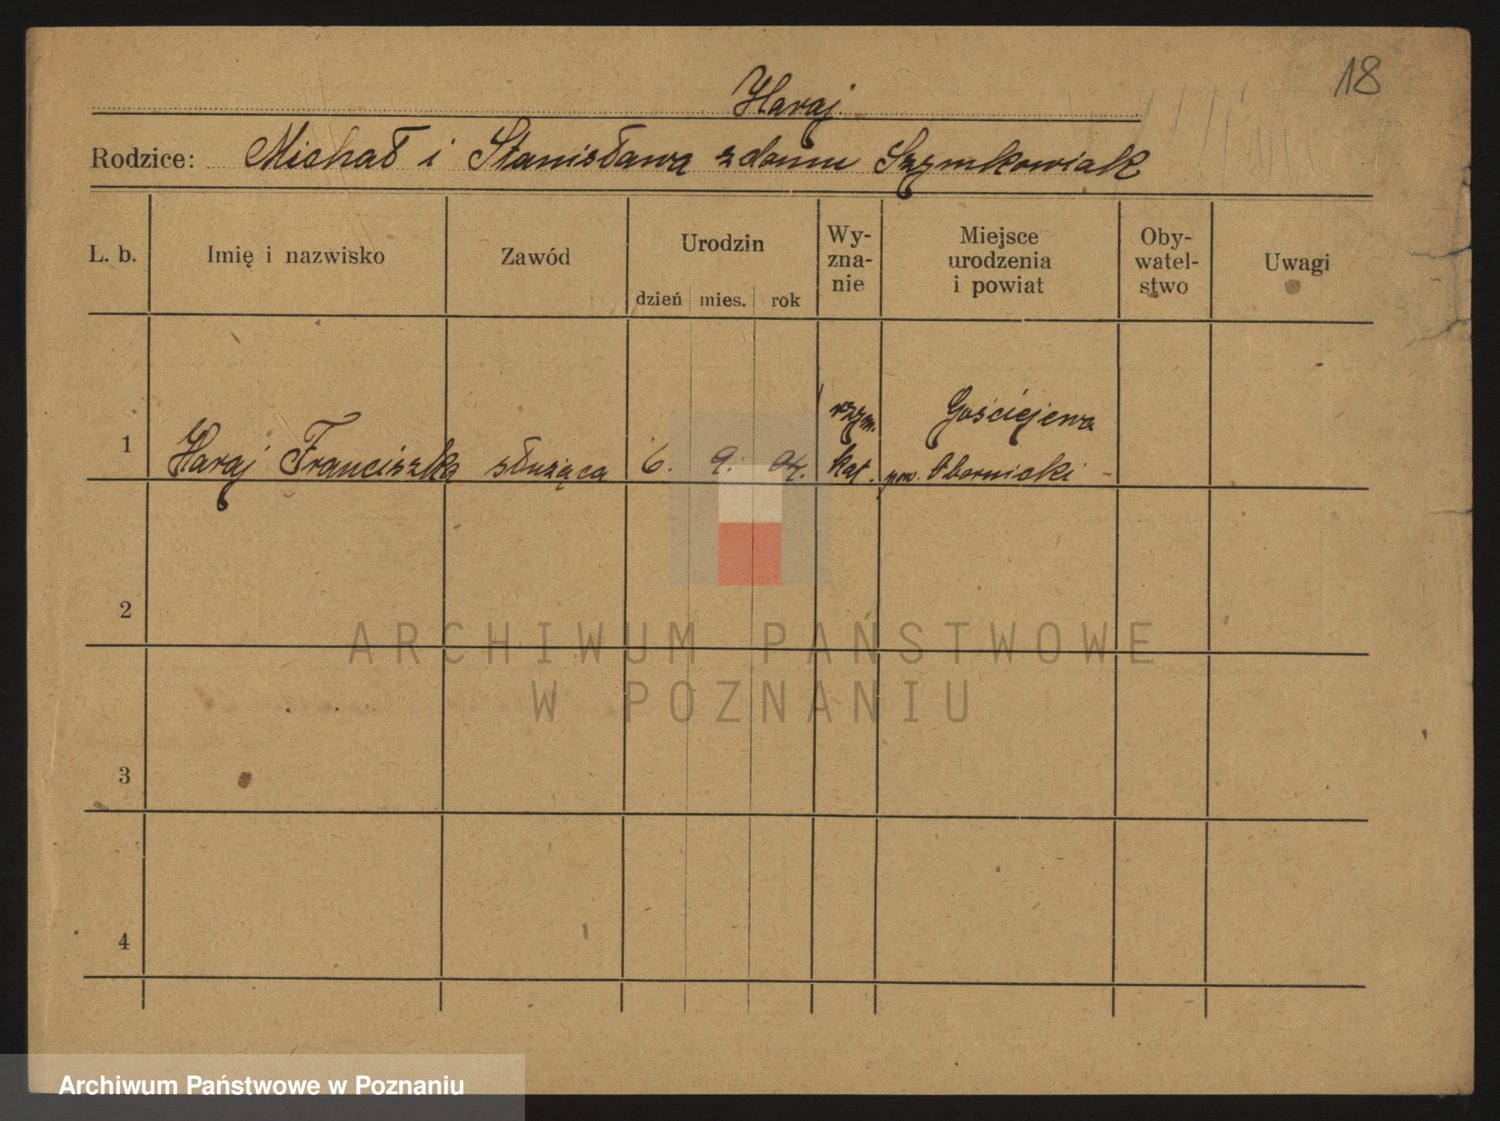 18
Haraj.
Rodzice: Michał i Stanisława z domu Szymkowiak
L. b. Imię i nazwisko Zawód Urodzin Wy-zna-nie Miejsce urodzenia i powiat Oby-watel-stwo Uwagi
dzień mies. rok
1 Haraj Franciszka służąca 6. 9. 04. rzym. kat. Gościejewa pow. Obornicki
2
3
4
ARCHIWUM PAŃSTWOWE
W POZNANIU
Archiwum Państwowe w Poznaniu